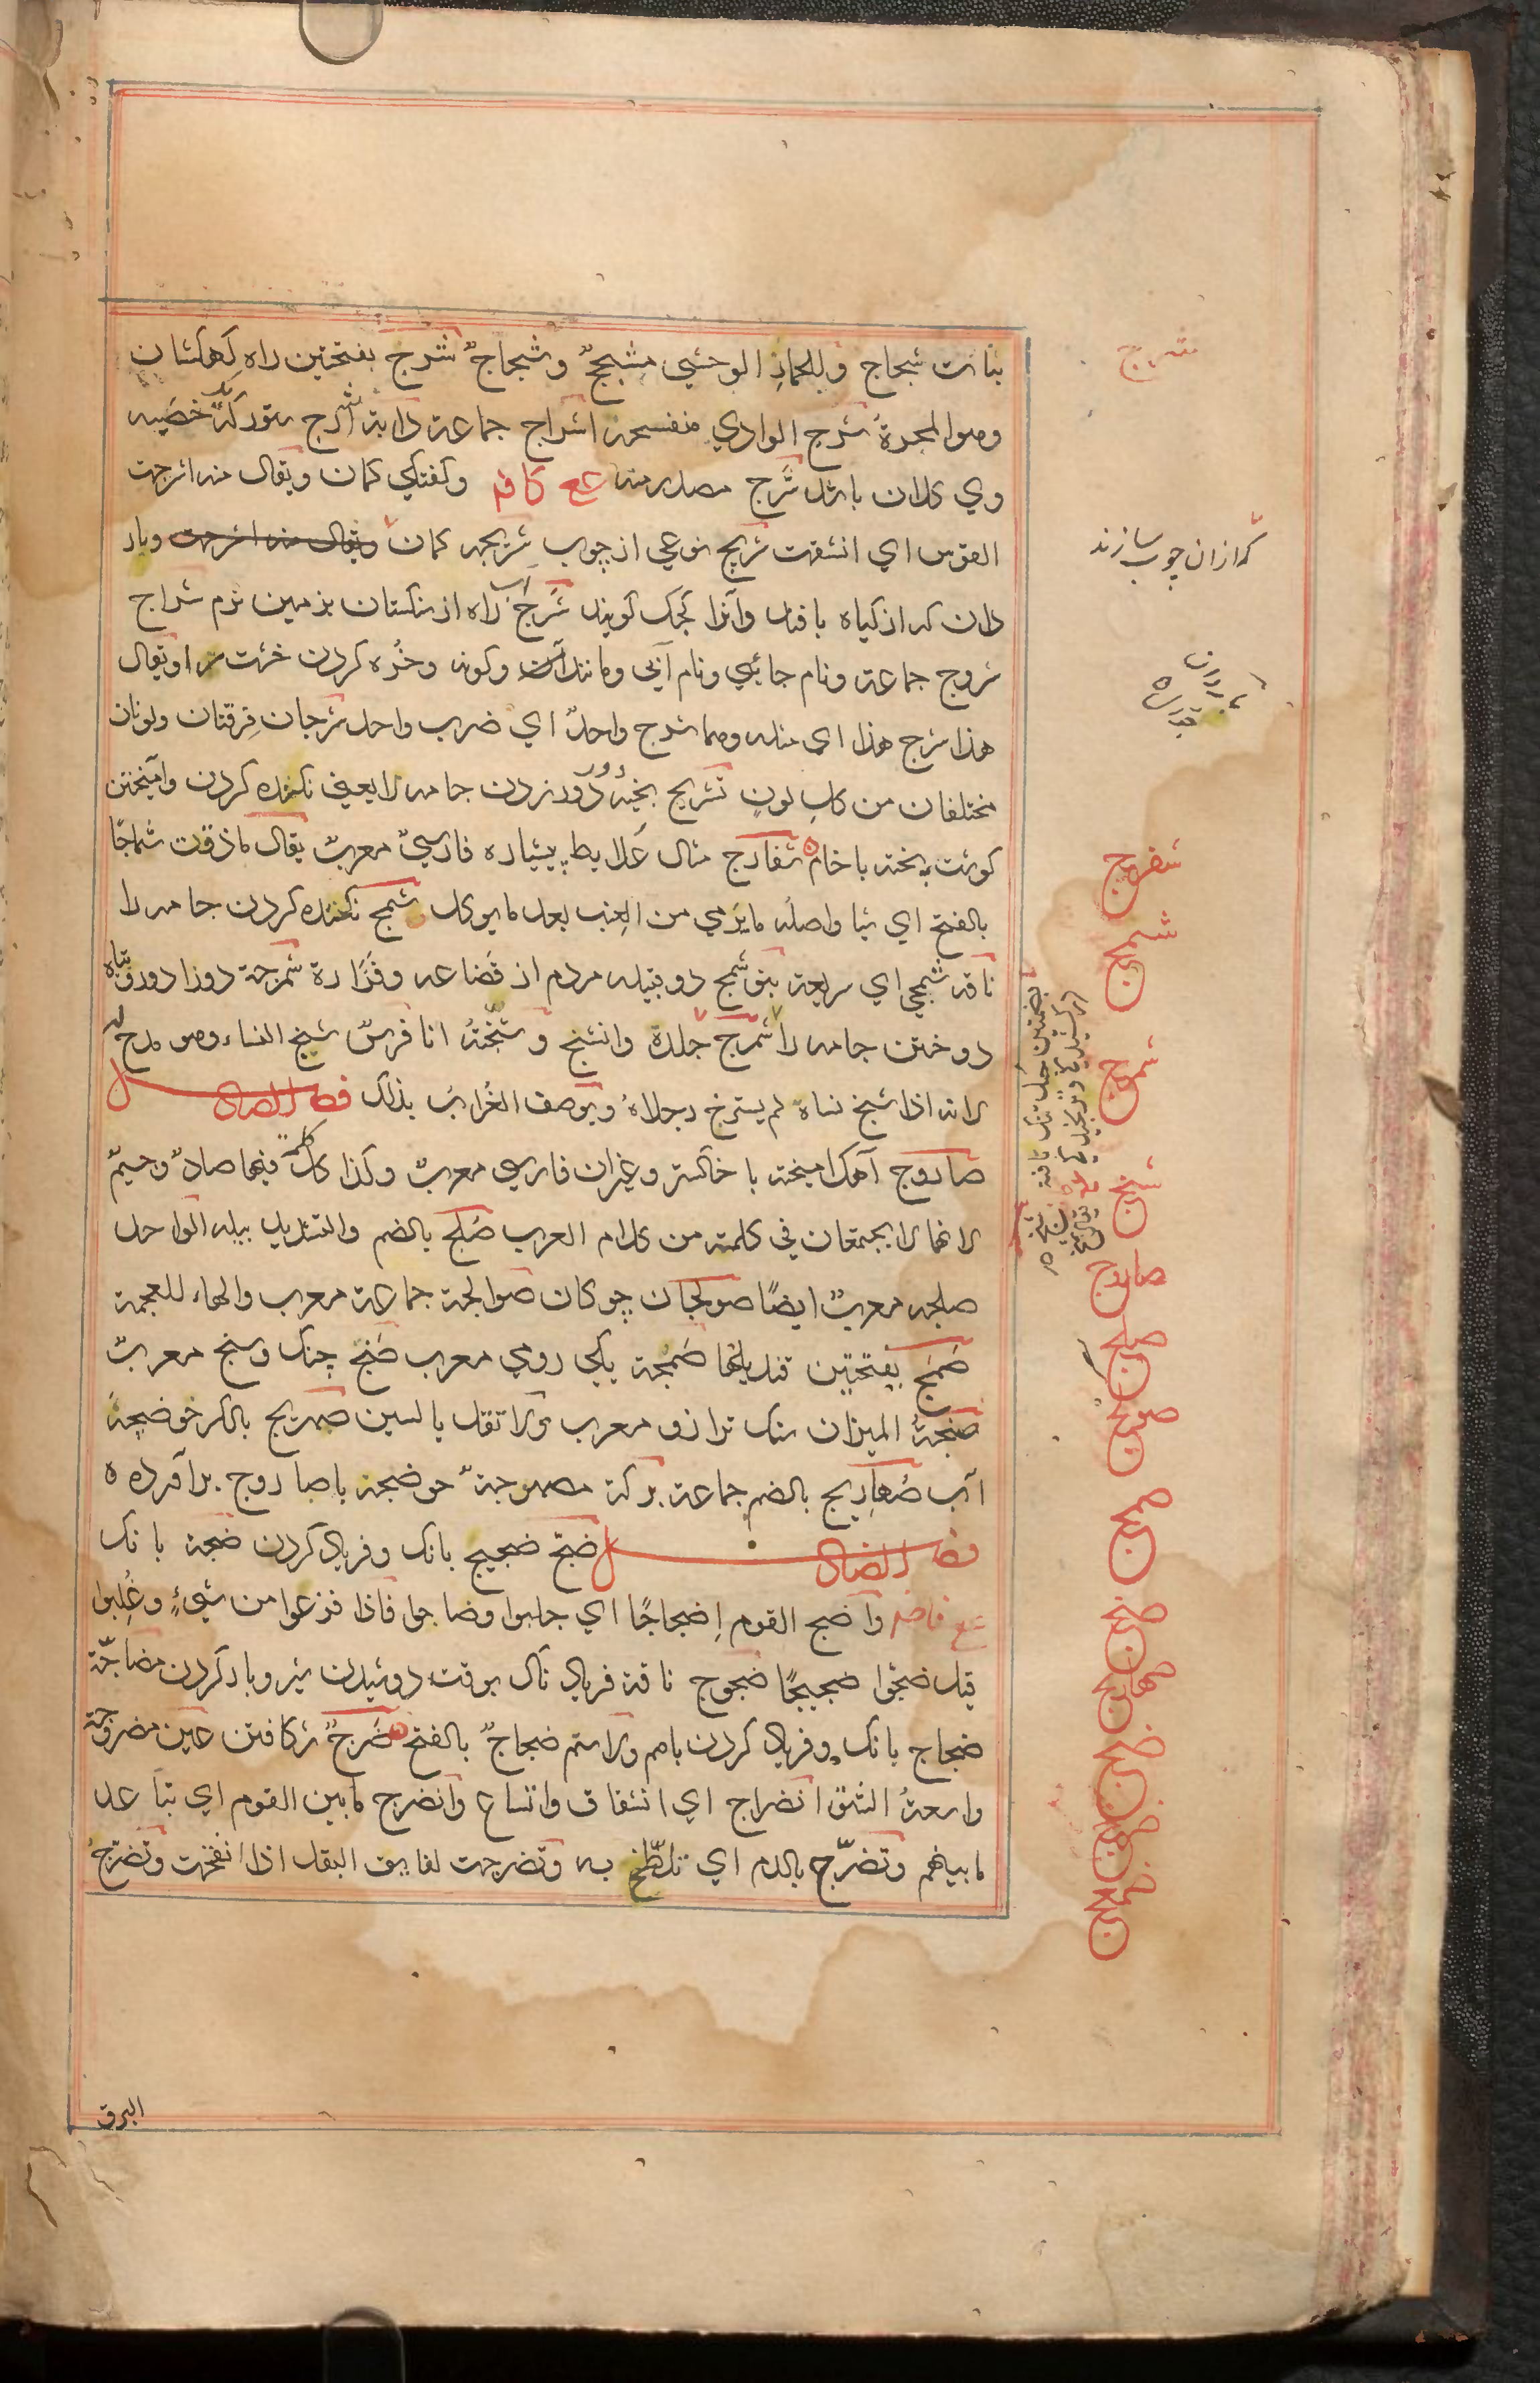 بنات شحاج وللحمار الوحشي مشحج وشحاج شرج بفتحتين راه کهکشان
وهو المجرة شرج الوادي منفسحه اشراج جماعة دابة اشرج ستور که یک خصیه
وي کلان باشد شرج مصدر منه ع ع کافم وکفتکي کمان ويقال منه انشرجت
القوس اي انشقت شريج نوعي از چوب شريجه کمان وبار
دان که از کیاه بافند وآنرا کجک کویند شرج راه آب از سنکستان بزمین نرم شراج
شروج جماعة ونام جائی ونام آبی ومانند آن وکونه وخرده کردن خشت را ويقال
هذا شرج هذا اي مثله وهما شرج واحد اي ضرب واحد شرجان فرقتان ولونان
مختلفان من كل لون تشريج بخیه دور دور زدن جامه را یعنی نکنده کردن وآمیختن
کوشت پخته با خام شفارج مثال علابط پیشیاره فارسي معرب يقال ماذقت شماجا
بالفتح اي شيا واصله مايرمي من العنب بعد مايوكل شمج نکنده کردن جامه را
ناقة شمجي اي سريعة بنو شمج دو قبیله مردم از قضاعه وفزارة شمرجة دورا دور وتباه
دوختن جامه را شمرج جلدة وانشنج وشنجته انا فرس شنج النساء وهو مدح له
لانه اذا شنج نساه لم يسترخ رجلاه ويوصف الغراب بذلك فصل الصاد
صاروج آهک آمیخته با خاکستر وغیر آن فارسي معرب وكذا كل كلمة فيها صاد وجيم
لانهما لا يجتمعان في كلمة من كلام العرب صلج بالضم والتشديد پیله الواحد
صلجه معرب ايضا صولجان چوکان صوالجة جماعة معرب والهاء للعجمة
صمج بفتحتين قنديلها صمجة يكي رومي معرب صنج چنک وسنج معرب
صنجة الميزان سنک ترازو معرب ولا تقل بالسين صهريج بالكسر حوضچه
آب صهاريج بالضم جماعة بركة مصهرجة حوضچه با صاروج برآورده
فصل الضاد ضج ضجيج بانک وفریاد کردن ضجة بانک
ع ع فاضم واضج القوم إضجاجا اي جلبوا وصاحوا فاذا فزعوا من شيء وغلبوا
قيل ضجوا ضجيجا ضجوج ناقة فریاد ناک بوقت دوشیدن شیر وبار کردن مضاجة
ضجاج بانک وفریاد کردن باهم والاسم ضجاج بالفتح ضرج شکافتن عين مضروجة
واسعة الشق انضراج اي انشقاق واتساع وانضرج مابين القوم اي تباعد
مابينهم وتضرج بالدم اي تلطخ به وتضرجت لفايف البقل اذا انفتحت وتضرج
البرق
شرج
که ازان چوب سازند
شمج
شنج
صاروج
صلج
صمج
صنج
ضجج
ضرج